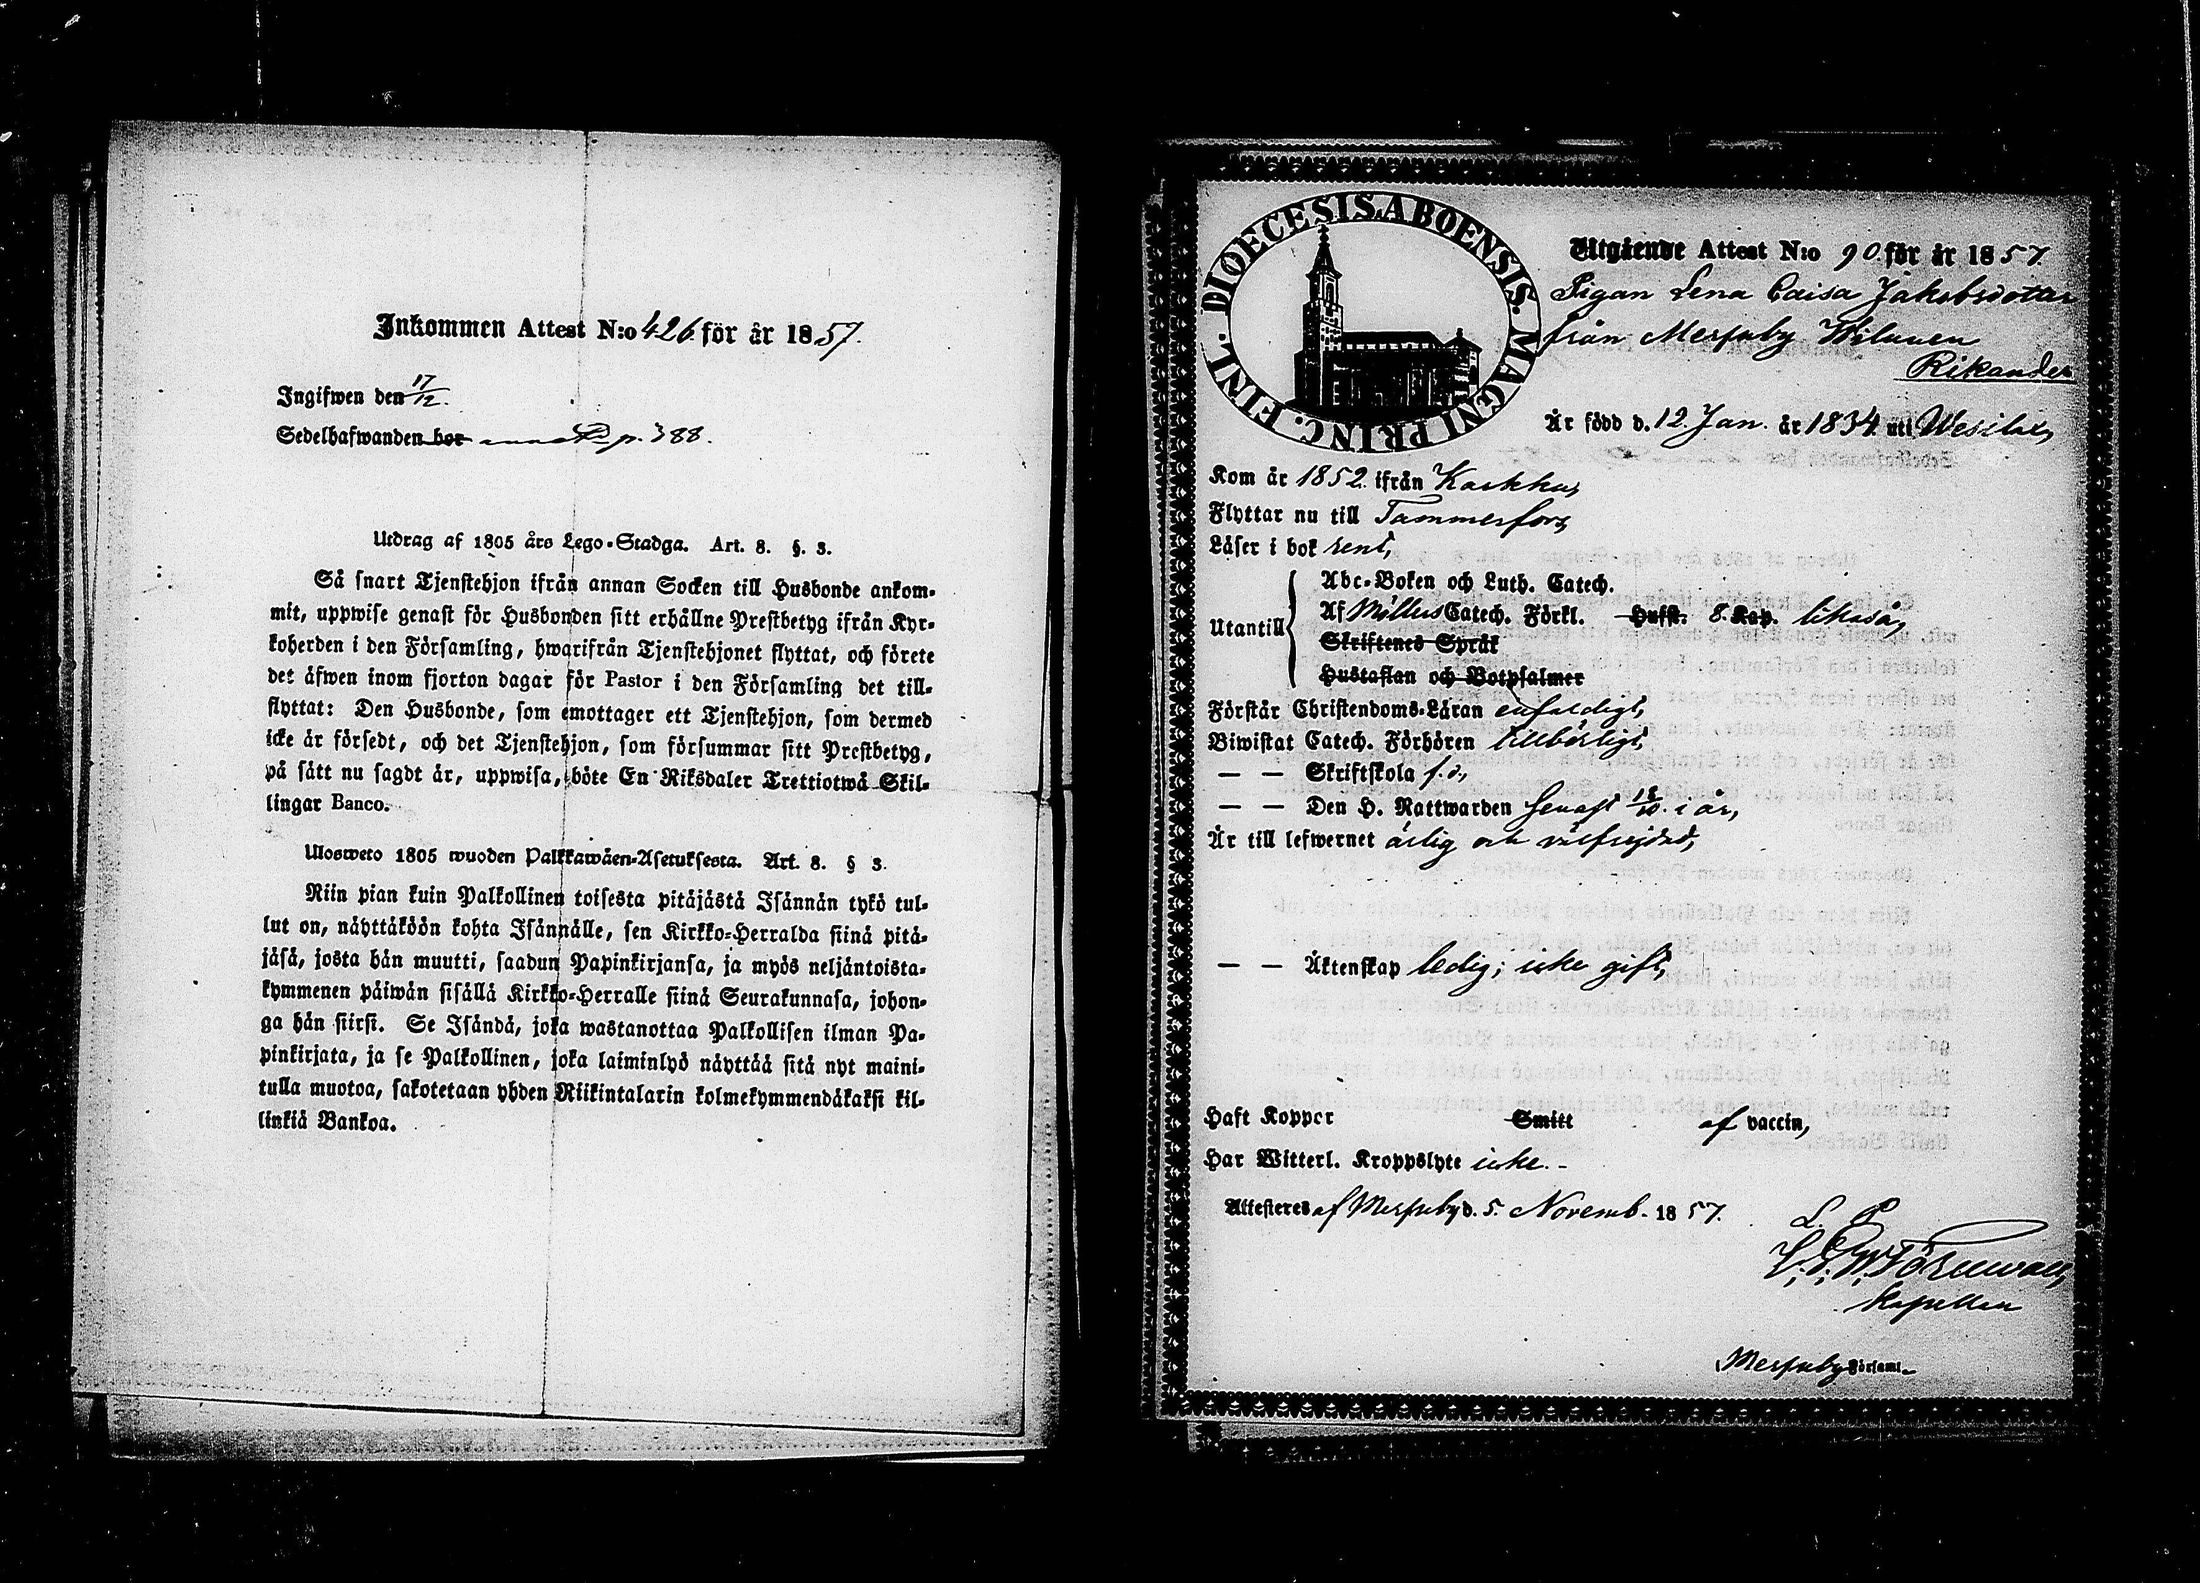 Inkommen Attest N:o 426 för år 1857.
Ingifwen den 17/12.
Sedelhafwanden bor p. 388.
Utdrag af 1805 års Lego-Stadga. Art. 8. §. 3.
Så snart Tjenstehjon ifrån annan Socken till Husbonde ankom-
mit, uppwise genast för Husbonden sitt erhållne Prestbetyg ifrån Kyr-
koherden i den Församling, hwarifrån Tjenstehjonet flyttat, och förete
det äfwen inom fjorton dagar för Pastor i den Församling det till-
flyttat: Den Husbonde, som emottager ett Tjenstehjon, som dermed
icke är försedt, och det Tjenstehjon, som försummar sitt Prestbetyg,
på sätt nu sagdt är, uppwisa, böte En Riksdaler Trettiotwå Skil-
lingar Banco.
Ulosweto 1805 wuoden Palkkawäen-Asetuksesta. Art. 8. § 3.
Niin pian kuin Palkollinen toisesta pitäjästä Isännän tykö tul-
lut on, näyttäköön kohta Isännälle, sen Kirkko-Herralda siinä pitä-
jäsä, josta hän muutti, saadun Papinkirjansa, ja myös neljäntoista-
kymmenen päiwän sisällä Kirkko-Herralle siinä Seurakunnasa, johon-
ga hän siirsi. Se Isändä, joka wastanottaa Palkollisen ilman Pa-
pinkirjata, ja se Palkollinen, joka laiminlyö näyttää sitä nyt maini-
tulla muotoa, sakotetaan yhden Riikintalarin kolmekymmendäkaksi kil-
linkiä Bankoa.
DIOECESIS. ABOENSIS. MAGNI PRINC. FINL.
Utgående Attest N:o 90 för år 1857.
Pigan Lena Caisa Jakobsdotter
från Messuby Wilunen
Rikander
Är född d. 12. Jan. år 1834 uti Wesilax,
Kom år 1852. ifrån Karkku,
Flyttar nu till Tammerfors,
Läser i bok rent,
Utantill
Abc-Boken och Luth. Catech.
Af Möllers Catech. Förkl. Hufst. 8. Kap. likaså,
Skriftenes Språk
Hustaflan och Botpsalmer
Förstår Christendoms-Läran enfaldigt,
Biwistat Catech. Förhören tillbörligt,
— — Skriftskola f. d.,
— — Den H. Nattwarden senast 18/10. i år,
Är till lefwernet ärlig och välfrejdad,
— — Äktenskap ledig; icke gift,
Haft Koppor Smitt af vaccin,
Har Witterl. Kroppslyte icke. -
Attesteres af Messuby d. 5. Novemb. 1857.
L. S.
Kapellan
Messuby Församl.